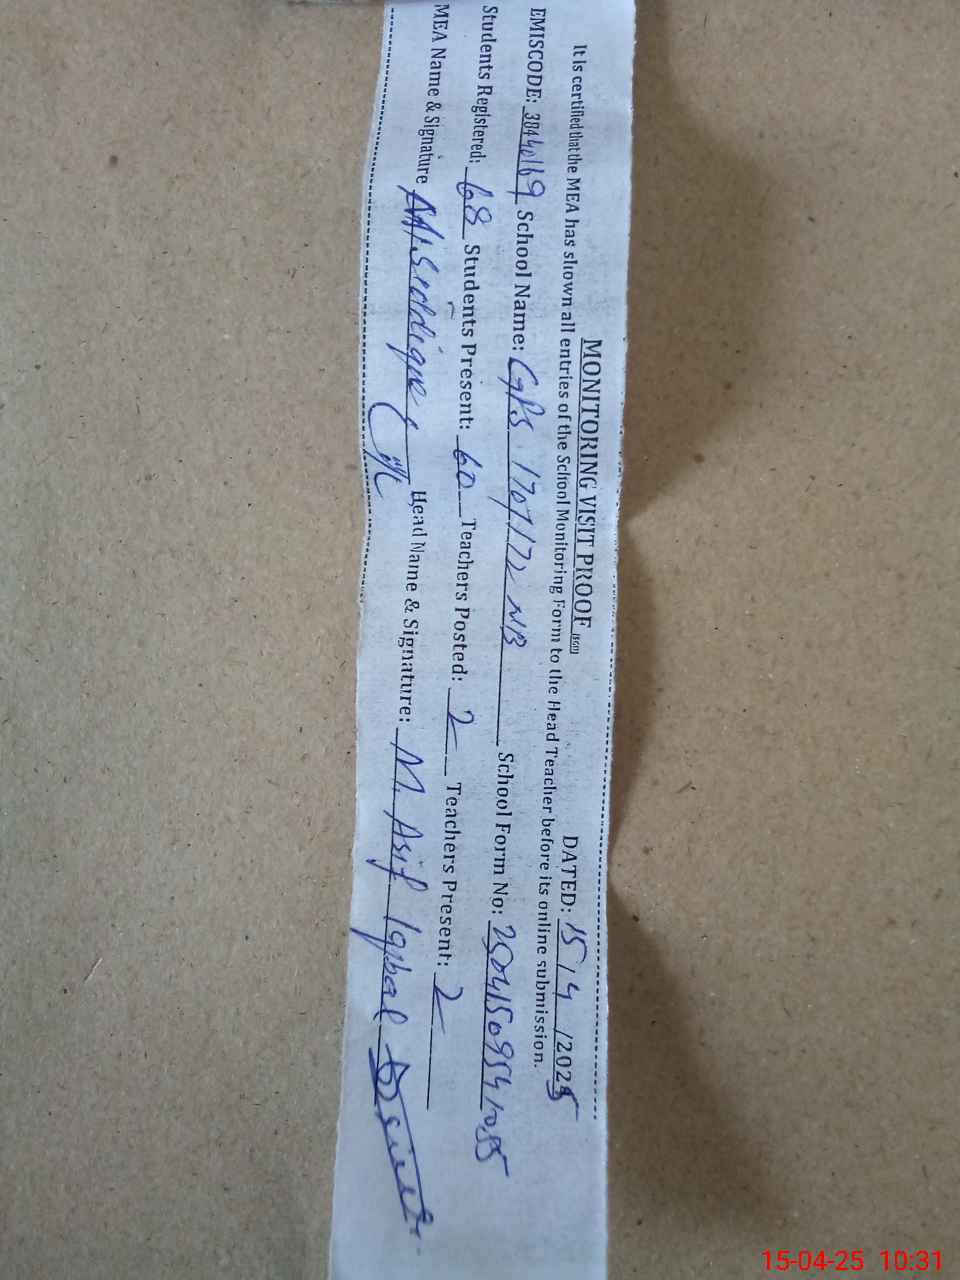 MONITORING VISIT PROOF DATED: 15/4/2025
It is certified that the MEA has shown all entries of the School Monitoring Form to the Head Teacher before its online submission.
EMISCODE: 38440169 School Name: GPS 170/172 NB School Form No:
Students Registered: 68 Students Present: 60 Teachers Posted: 2 Teachers Present: 2
MEA Name & Signature Siddique Head Name & Signature: M. Asif Iqbal
15-04-25 10:31